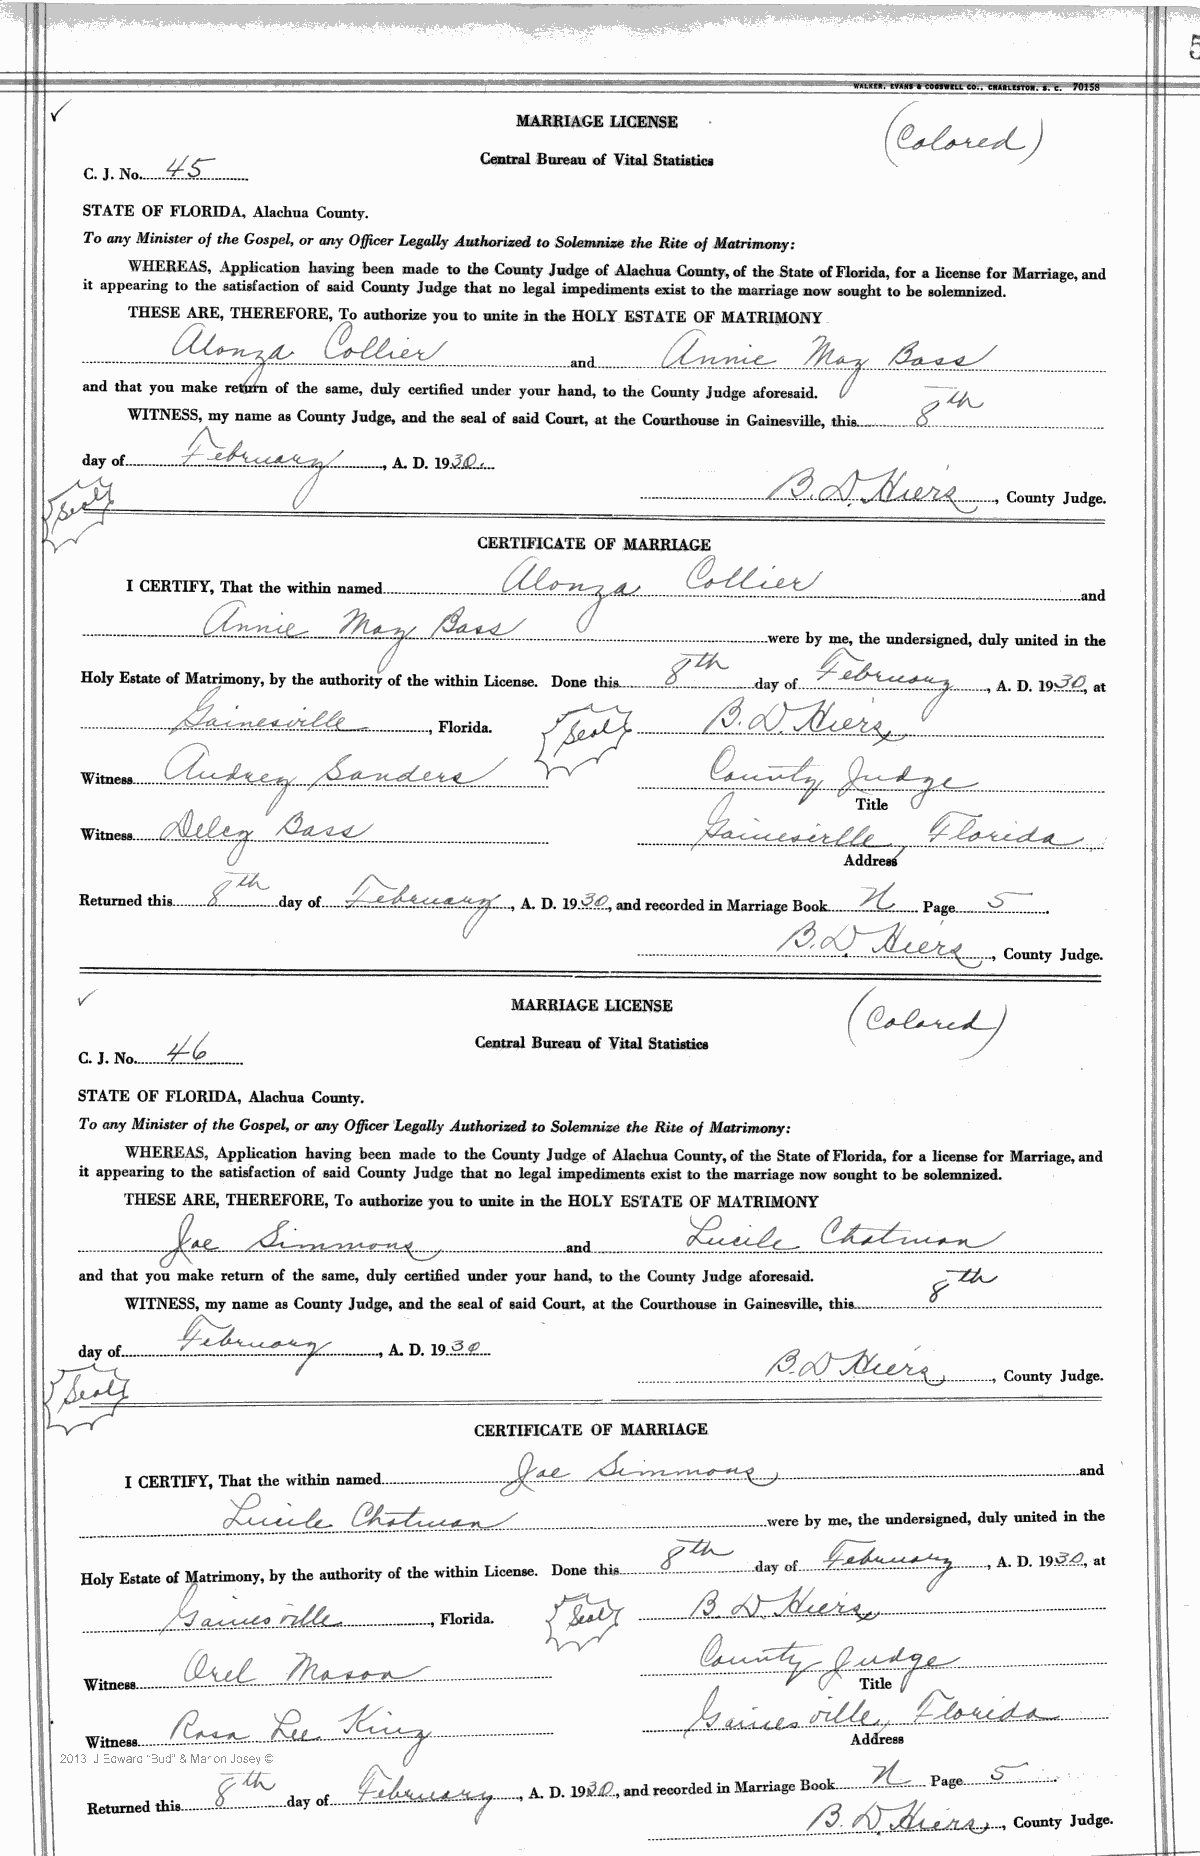 5
WALKER, EVANS & COGSWELL CO., CHARLESTON, S. C. 70158
✓
MARRIAGE LICENSE
(Colored)
Central Bureau of Vital Statistics
C. J. No. 45
STATE OF FLORIDA, Alachua County.
To any Minister of the Gospel, or any Officer Legally Authorized to Solemnize the Rite of Matrimony:
WHEREAS, Application having been made to the County Judge of Alachua County, of the State of Florida, for a license for Marriage, and
it appearing to the satisfaction of said County Judge that no legal impediments exist to the marriage now sought to be solemnized.
THESE ARE, THEREFORE, To authorize you to unite in the HOLY ESTATE OF MATRIMONY
Alonza Collier and Annie May Bass
and that you make return of the same, duly certified under your hand, to the County Judge aforesaid.
WITNESS, my name as County Judge, and the seal of said Court, at the Courthouse in Gainesville, this 8th
day of February, A. D. 1930.
B. D. Hiers, County Judge.
Seal
CERTIFICATE OF MARRIAGE
I CERTIFY, That the within named Alonza Collier and
Annie May Bass were by me, the undersigned, duly united in the
Holy Estate of Matrimony, by the authority of the within License. Done this 8th day of February, A. D. 1930, at
Gainesville, Florida. Seal B. D. Hiers
Witness Audrey Sanders County Judge
Title
Witness Deley Bass Gainesville, Florida
Address
Returned this 8th day of February, A. D. 1930, and recorded in Marriage Book N Page 5.
B. D. Hiers, County Judge.
✓
MARRIAGE LICENSE
(Colored)
Central Bureau of Vital Statistics
C. J. No. 46
STATE OF FLORIDA, Alachua County.
To any Minister of the Gospel, or any Officer Legally Authorized to Solemnize the Rite of Matrimony:
WHEREAS, Application having been made to the County Judge of Alachua County, of the State of Florida, for a license for Marriage, and
it appearing to the satisfaction of said County Judge that no legal impediments exist to the marriage now sought to be solemnized.
THESE ARE, THEREFORE, To authorize you to unite in the HOLY ESTATE OF MATRIMONY
Joe Simmons and Lucile Chatman
and that you make return of the same, duly certified under your hand, to the County Judge aforesaid.
WITNESS, my name as County Judge, and the seal of said Court, at the Courthouse in Gainesville, this 8th
day of February, A. D. 1930
B. D. Hiers, County Judge.
Seal
CERTIFICATE OF MARRIAGE
I CERTIFY, That the within named Joe Simmons and
Lucile Chatman were by me, the undersigned, duly united in the
Holy Estate of Matrimony, by the authority of the within License. Done this 8th day of February, A. D. 1930, at
Gainesville, Florida. Seal B. D. Hiers
Witness Orel Mason County Judge
Title
Witness Rosa Lee King Gainesville, Florida
Address
2013 J Edward "Bud" & Marion Josey ©
Returned this 8th day of February, A. D. 1930, and recorded in Marriage Book N Page 5.
B. D. Hiers, County Judge.